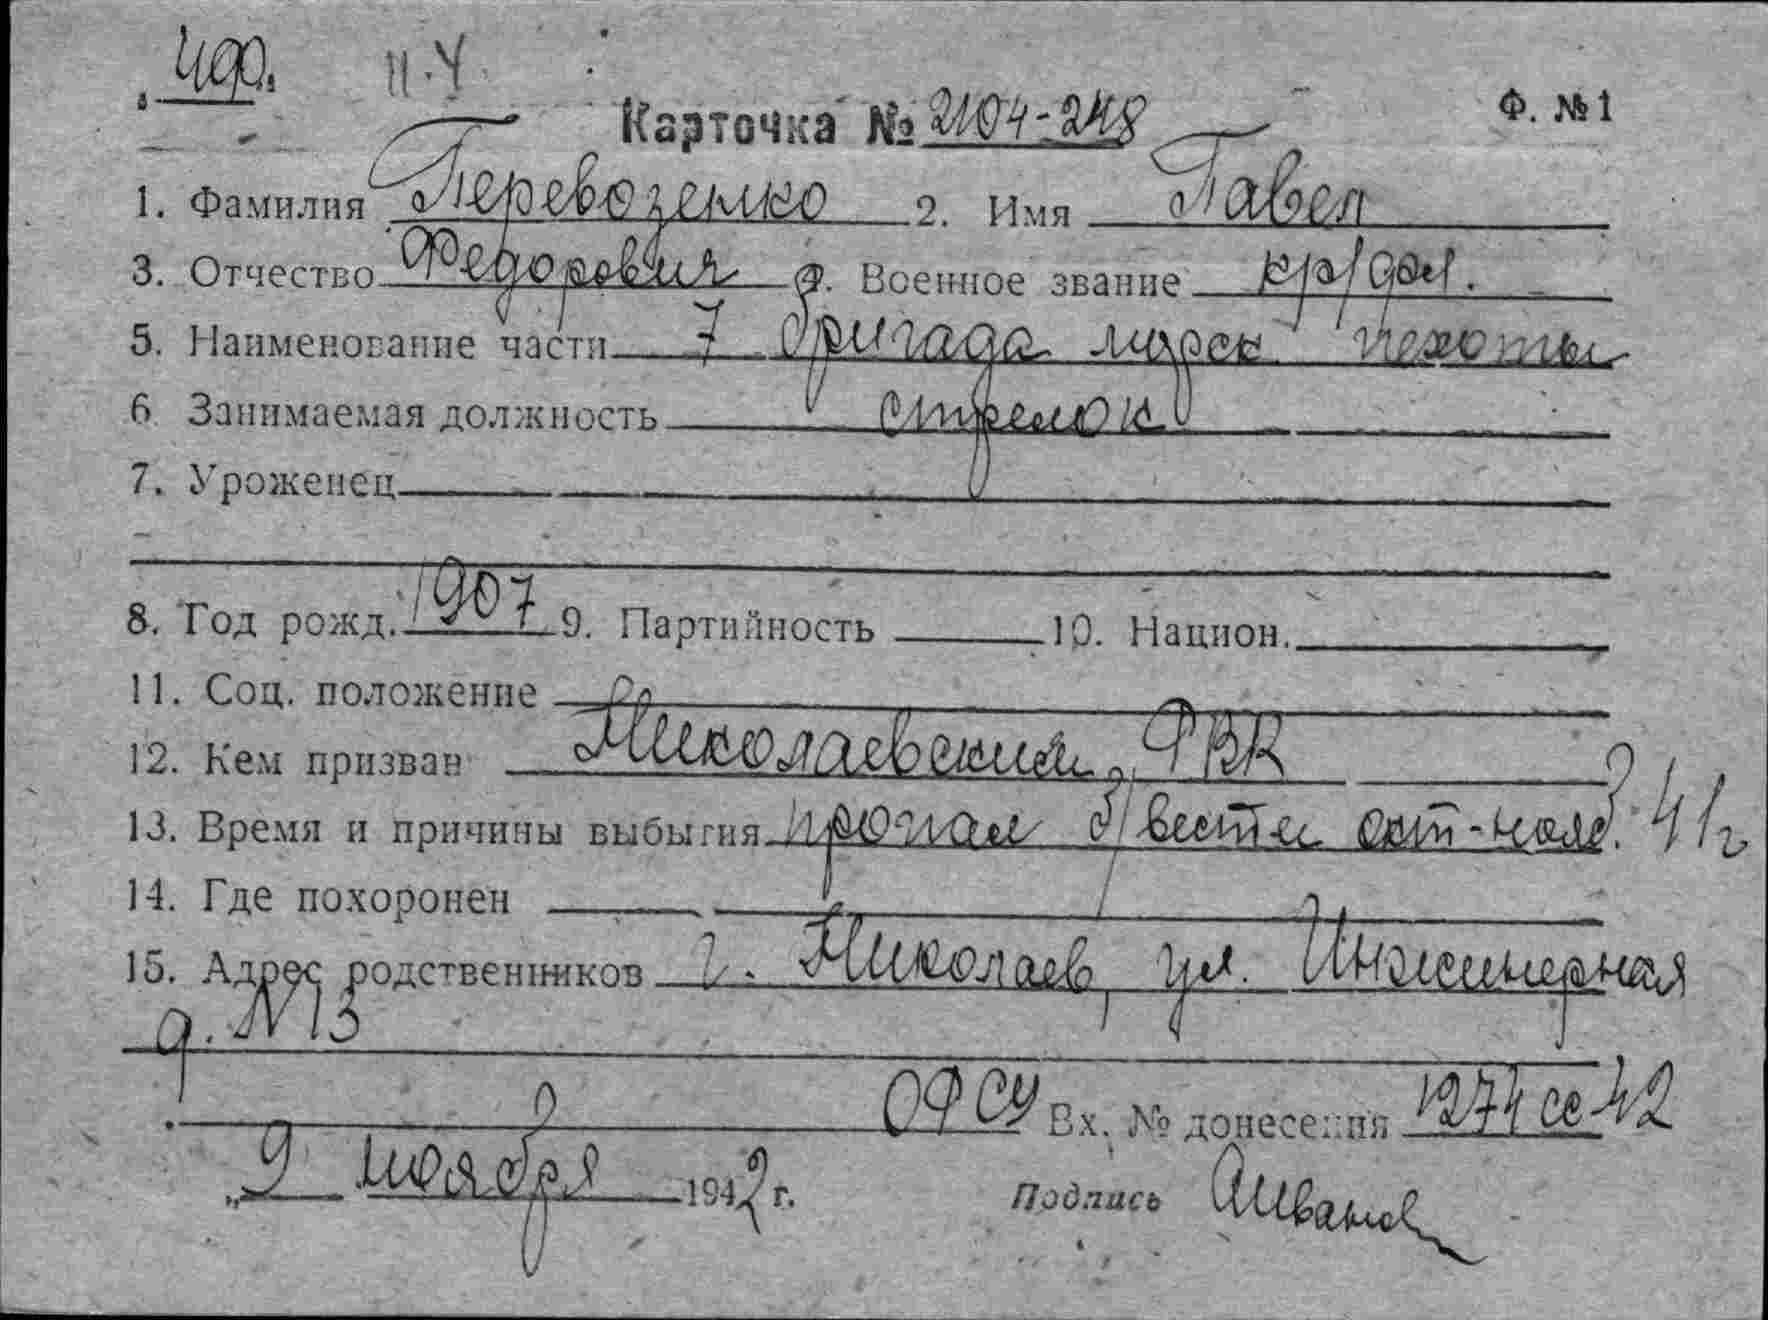 чф. 11.4
Карточка № 2104-248 Ф. №1
1. Фамилия Перевозенко 2. Имя Павел
3. Отчество Федорович Военное звание кр/фл.
5. Наименование части 7 бригада морск пехоты
6 Занимаемая должность стрелок
7. Уроженец
8. Год рожд. 1907 9. Партийность 10. Национ.
11. Соц. положение
12. Кем призван Николаевским РВК
13. Время и причины выбытия пропал б/вести окт-нояб. 41г
14. Где похоронен
15. Адрес родственников г. Николаев, ул. Инжинерная
д. N 13
ОФСУ Вх. № донесения 1274 сс 42
„ 9 ноября 1942 г. Подпись АИванов